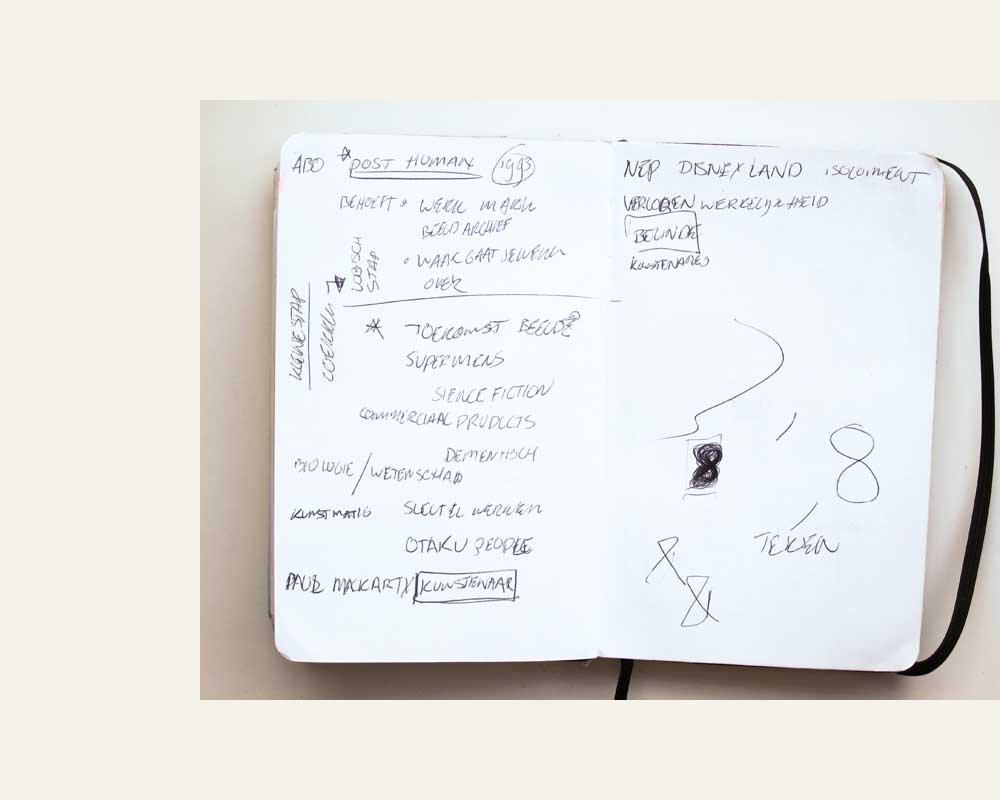 ABO POST HUMAN 1993
BEHOEFT WERK MARK
BEELD ARCHIEF
LOGISCH
STAP
WAAR GAAT JE WERK
OVER
KLEINE STAP
TOEKOMST BEELDE
SUPERMENS
SIENCE FICTION
COMMERCIAAL PRUDUCTS
DEMENTISCH
BIOLOGIE / WETENSCHAP
KUNSTMATIG SLEUTEL WERKEN
OTAKU PEOPLE
PAUL MAKARTY KUNSTENAAR
NEP DISNEYLAND ISOLOMENT
VERLOREN WERKELIJKHEID
BELINDE
KUNSTENARES
8 8
TEKEN
8
8